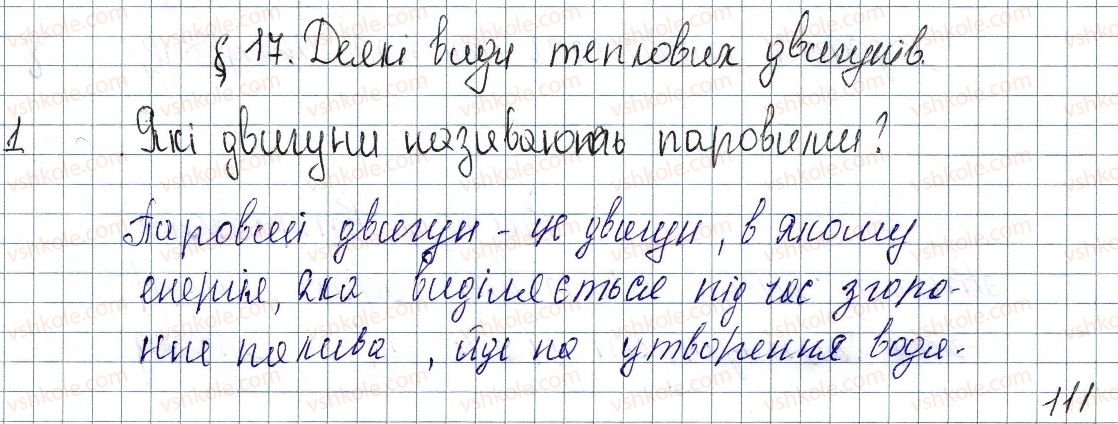 § 17. Деякі види теплових двигунів.
1 Які двигуни називають паровими?
Паровий двигун - це двигун, в якому
енергія, яка виділяється під час згоря-
ння палива, йде на утворення водя-
111